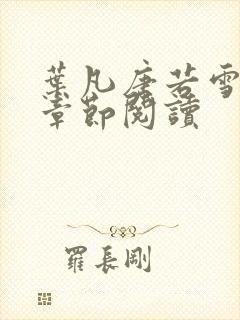 葉凡唐若雪
章節閱讀
羅長剛